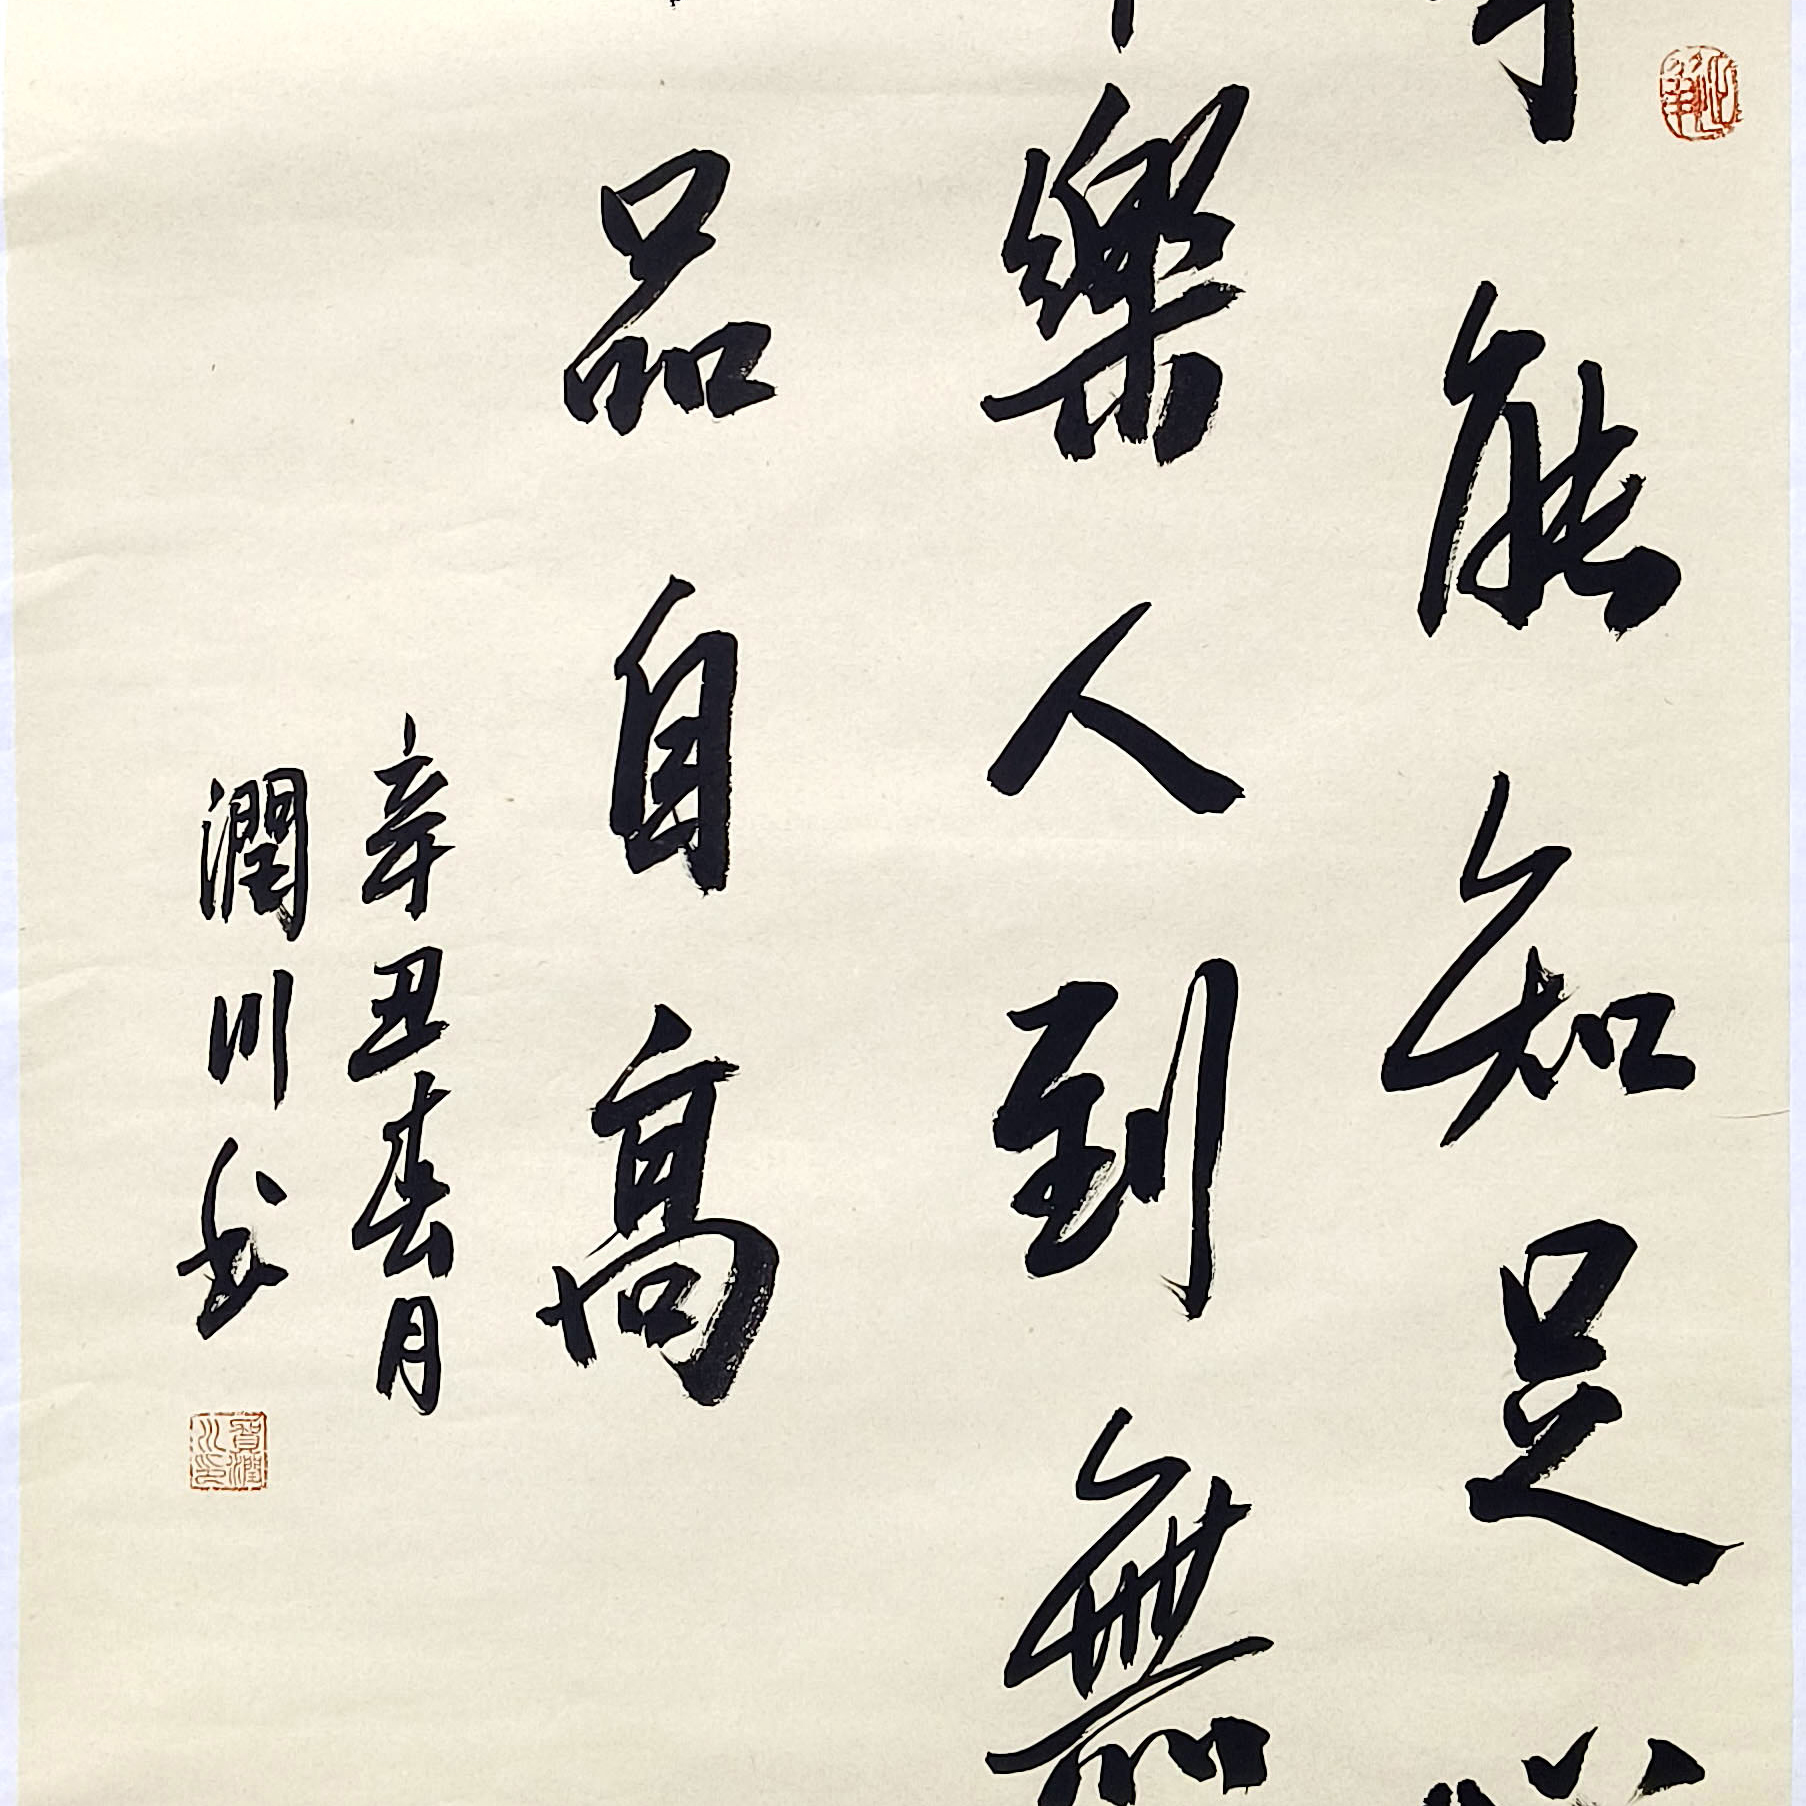 能知足
樂人到無
品自高
辛丑春月
潤川書
賀潤川印